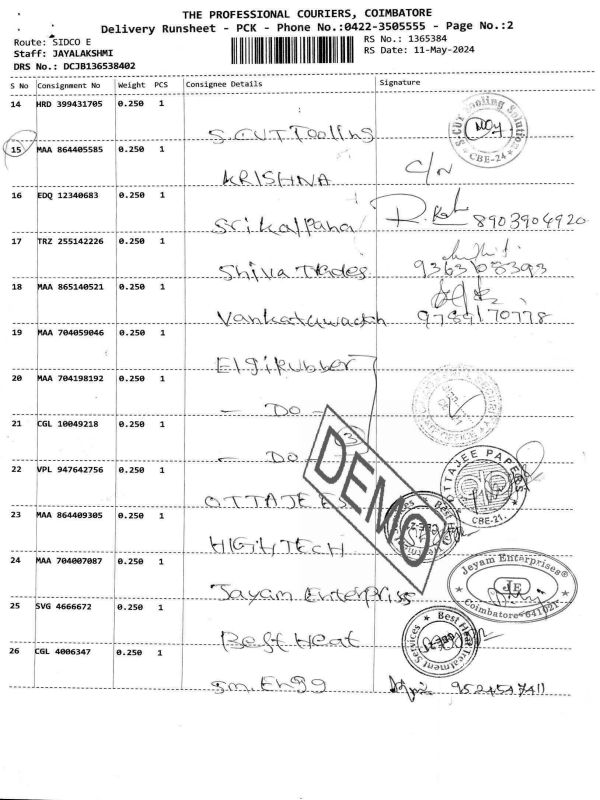 THE PROFESSIONAL COURIERS, COIMBATORE
Delivery Runsheet - PCK - Phone No.:0422-3505555 - Page No.:2
Route: SIDCO E
RS No.: 1365384
Staff: JAYALAKSHMI
RS Date: 11-May-2024
DRS No.: DCJB136538402
S No Consignment No Weight PCS Consignee Details Signature
14 HRD 399431705 0.250 1
S.CUT Tooling
S.CUT Tooling Solution CBE-24
15 MAA 864405585 0.250 1
KRISHNA C/N
16 EDQ 12340683 0.250 1
Srikalpana 8903904920
17 TRZ 255142226 0.250 1
Shiva Trades 9363108393
18 MAA 865140521 0.250 1
9789170778
19 MAA 704059046 0.250 1
Elgi Rubber
20 MAA 704198192 0.250 1
- DO -
21 CGL 10049218 0.250 1
- DO - 3
DEMO
22 VPL 947642756 0.250 1
OTTAJEE
OTTAJEE PAPERS CBE-21
23 MAA 864409305 0.250 1
HIGH TECH
24 MAA 704007087 0.250 1
Jayam Enterpriss
Jeyam Enterprises® JE Coimbatore-641021
25 SVG 4666672 0.250 1
Best Heat
Best Heat Treatment Services
26 CGL 4006347 0.250 1
Sm. Engg